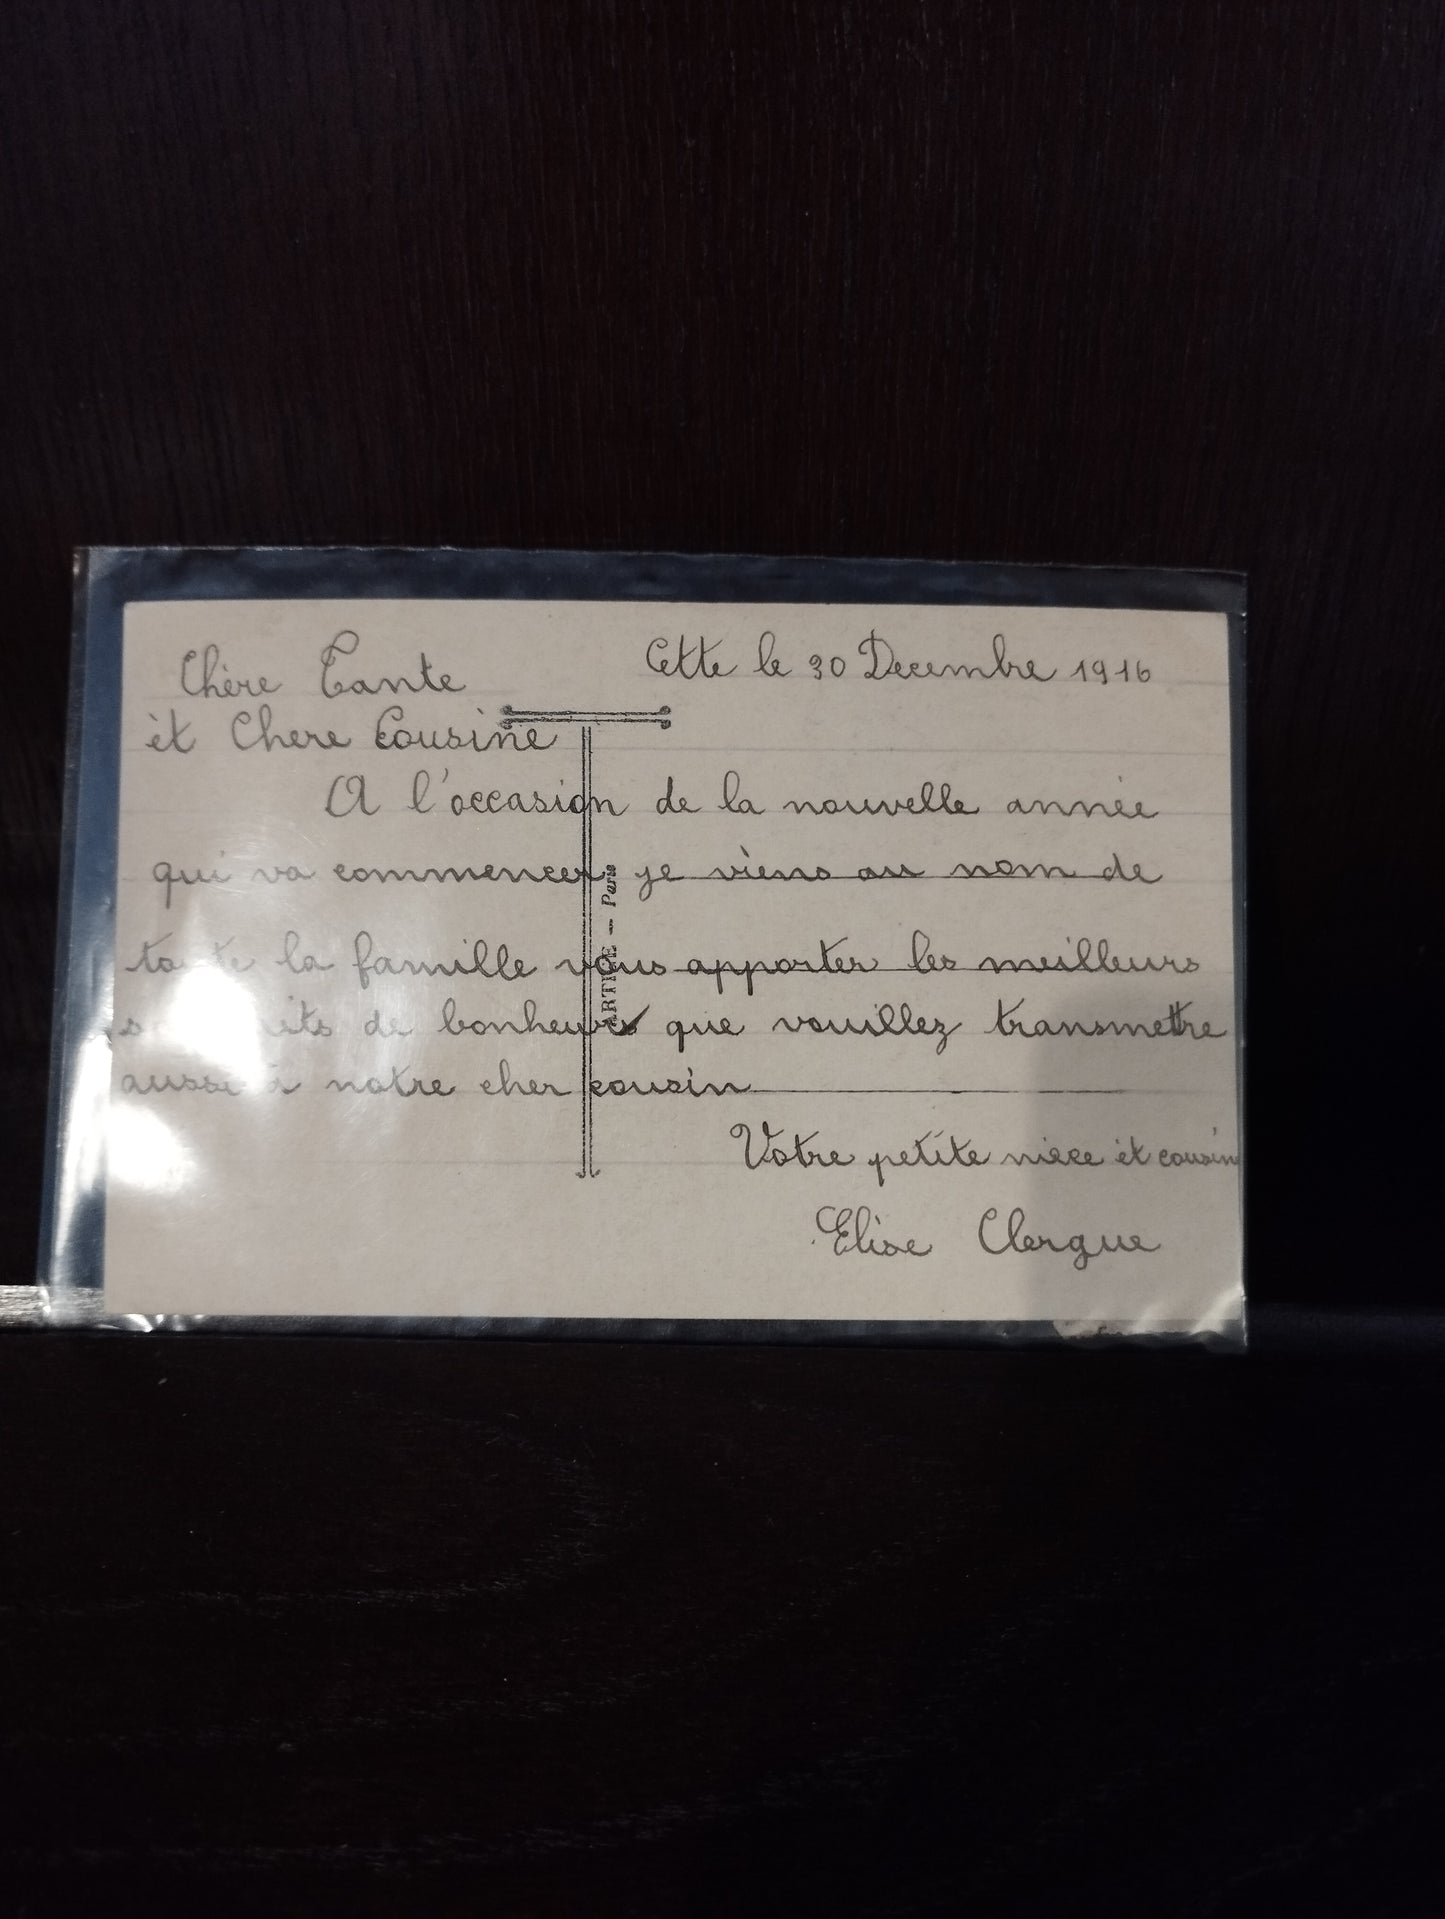 Cette le 30 Decembre 1916
Chère Tante
èt Chere Cousine
A l'occasion de la nouvelle année
qui va commencer je viens au nom de
toute la famille vous apporter les meilleurs
de bonheurs que vouillez transmettre
aussi à notre cher cousin
Votre petite niece èt cousin
Elise Clergue
ARTIGE – Paris